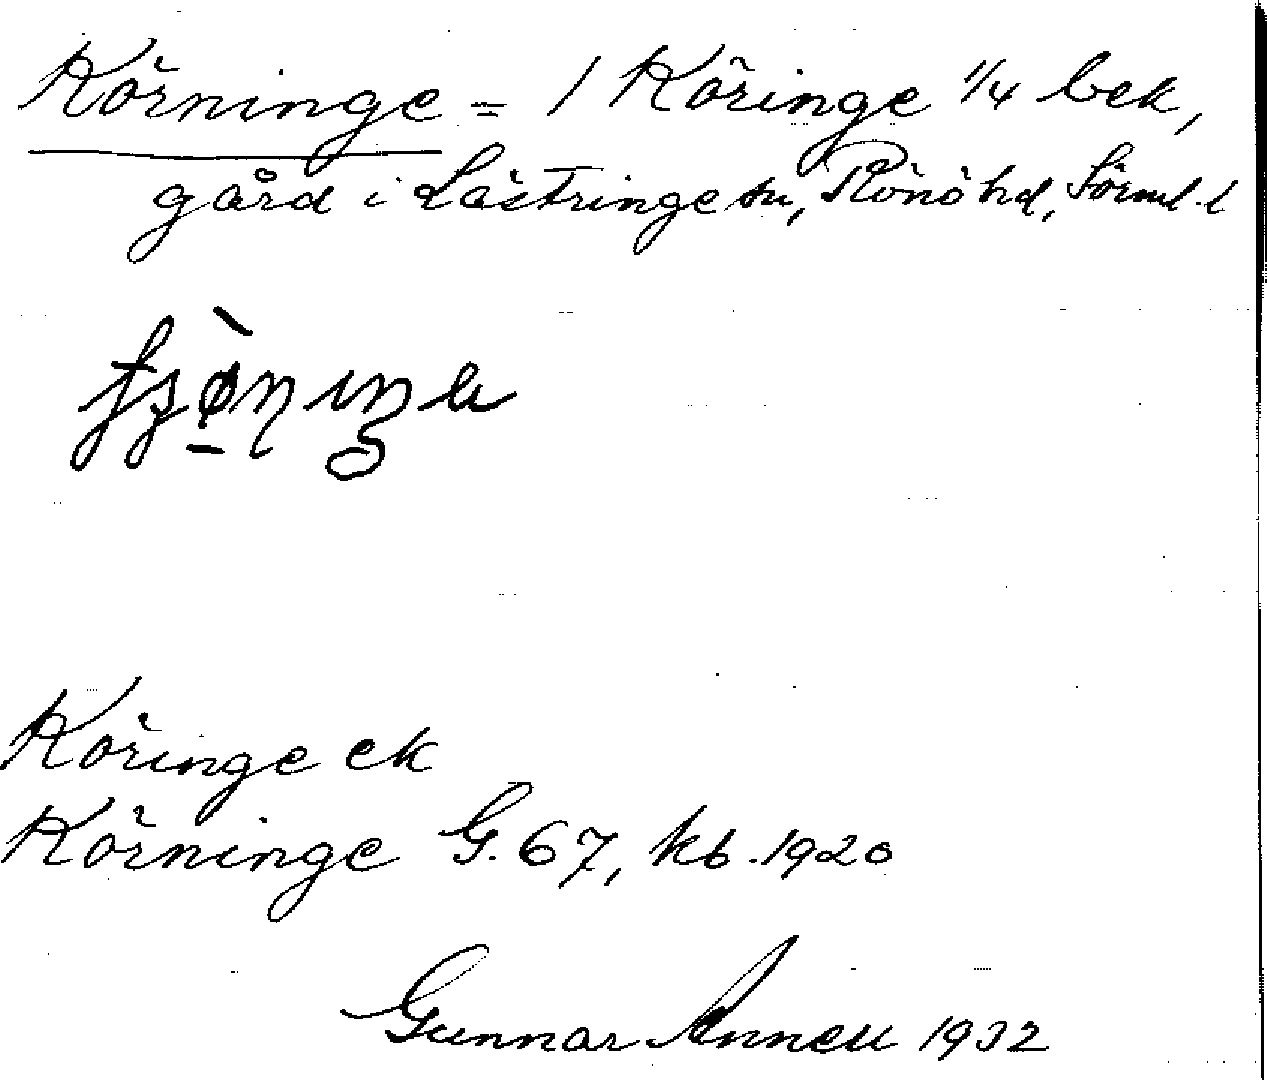 Körninge = 1 Köringe 1/4 bek,
gård i Lästringe sn, Rönö hd, Sörml. l
Köringe ek
Körninge G. 67, kb. 1920
Gunnar Annell 1932